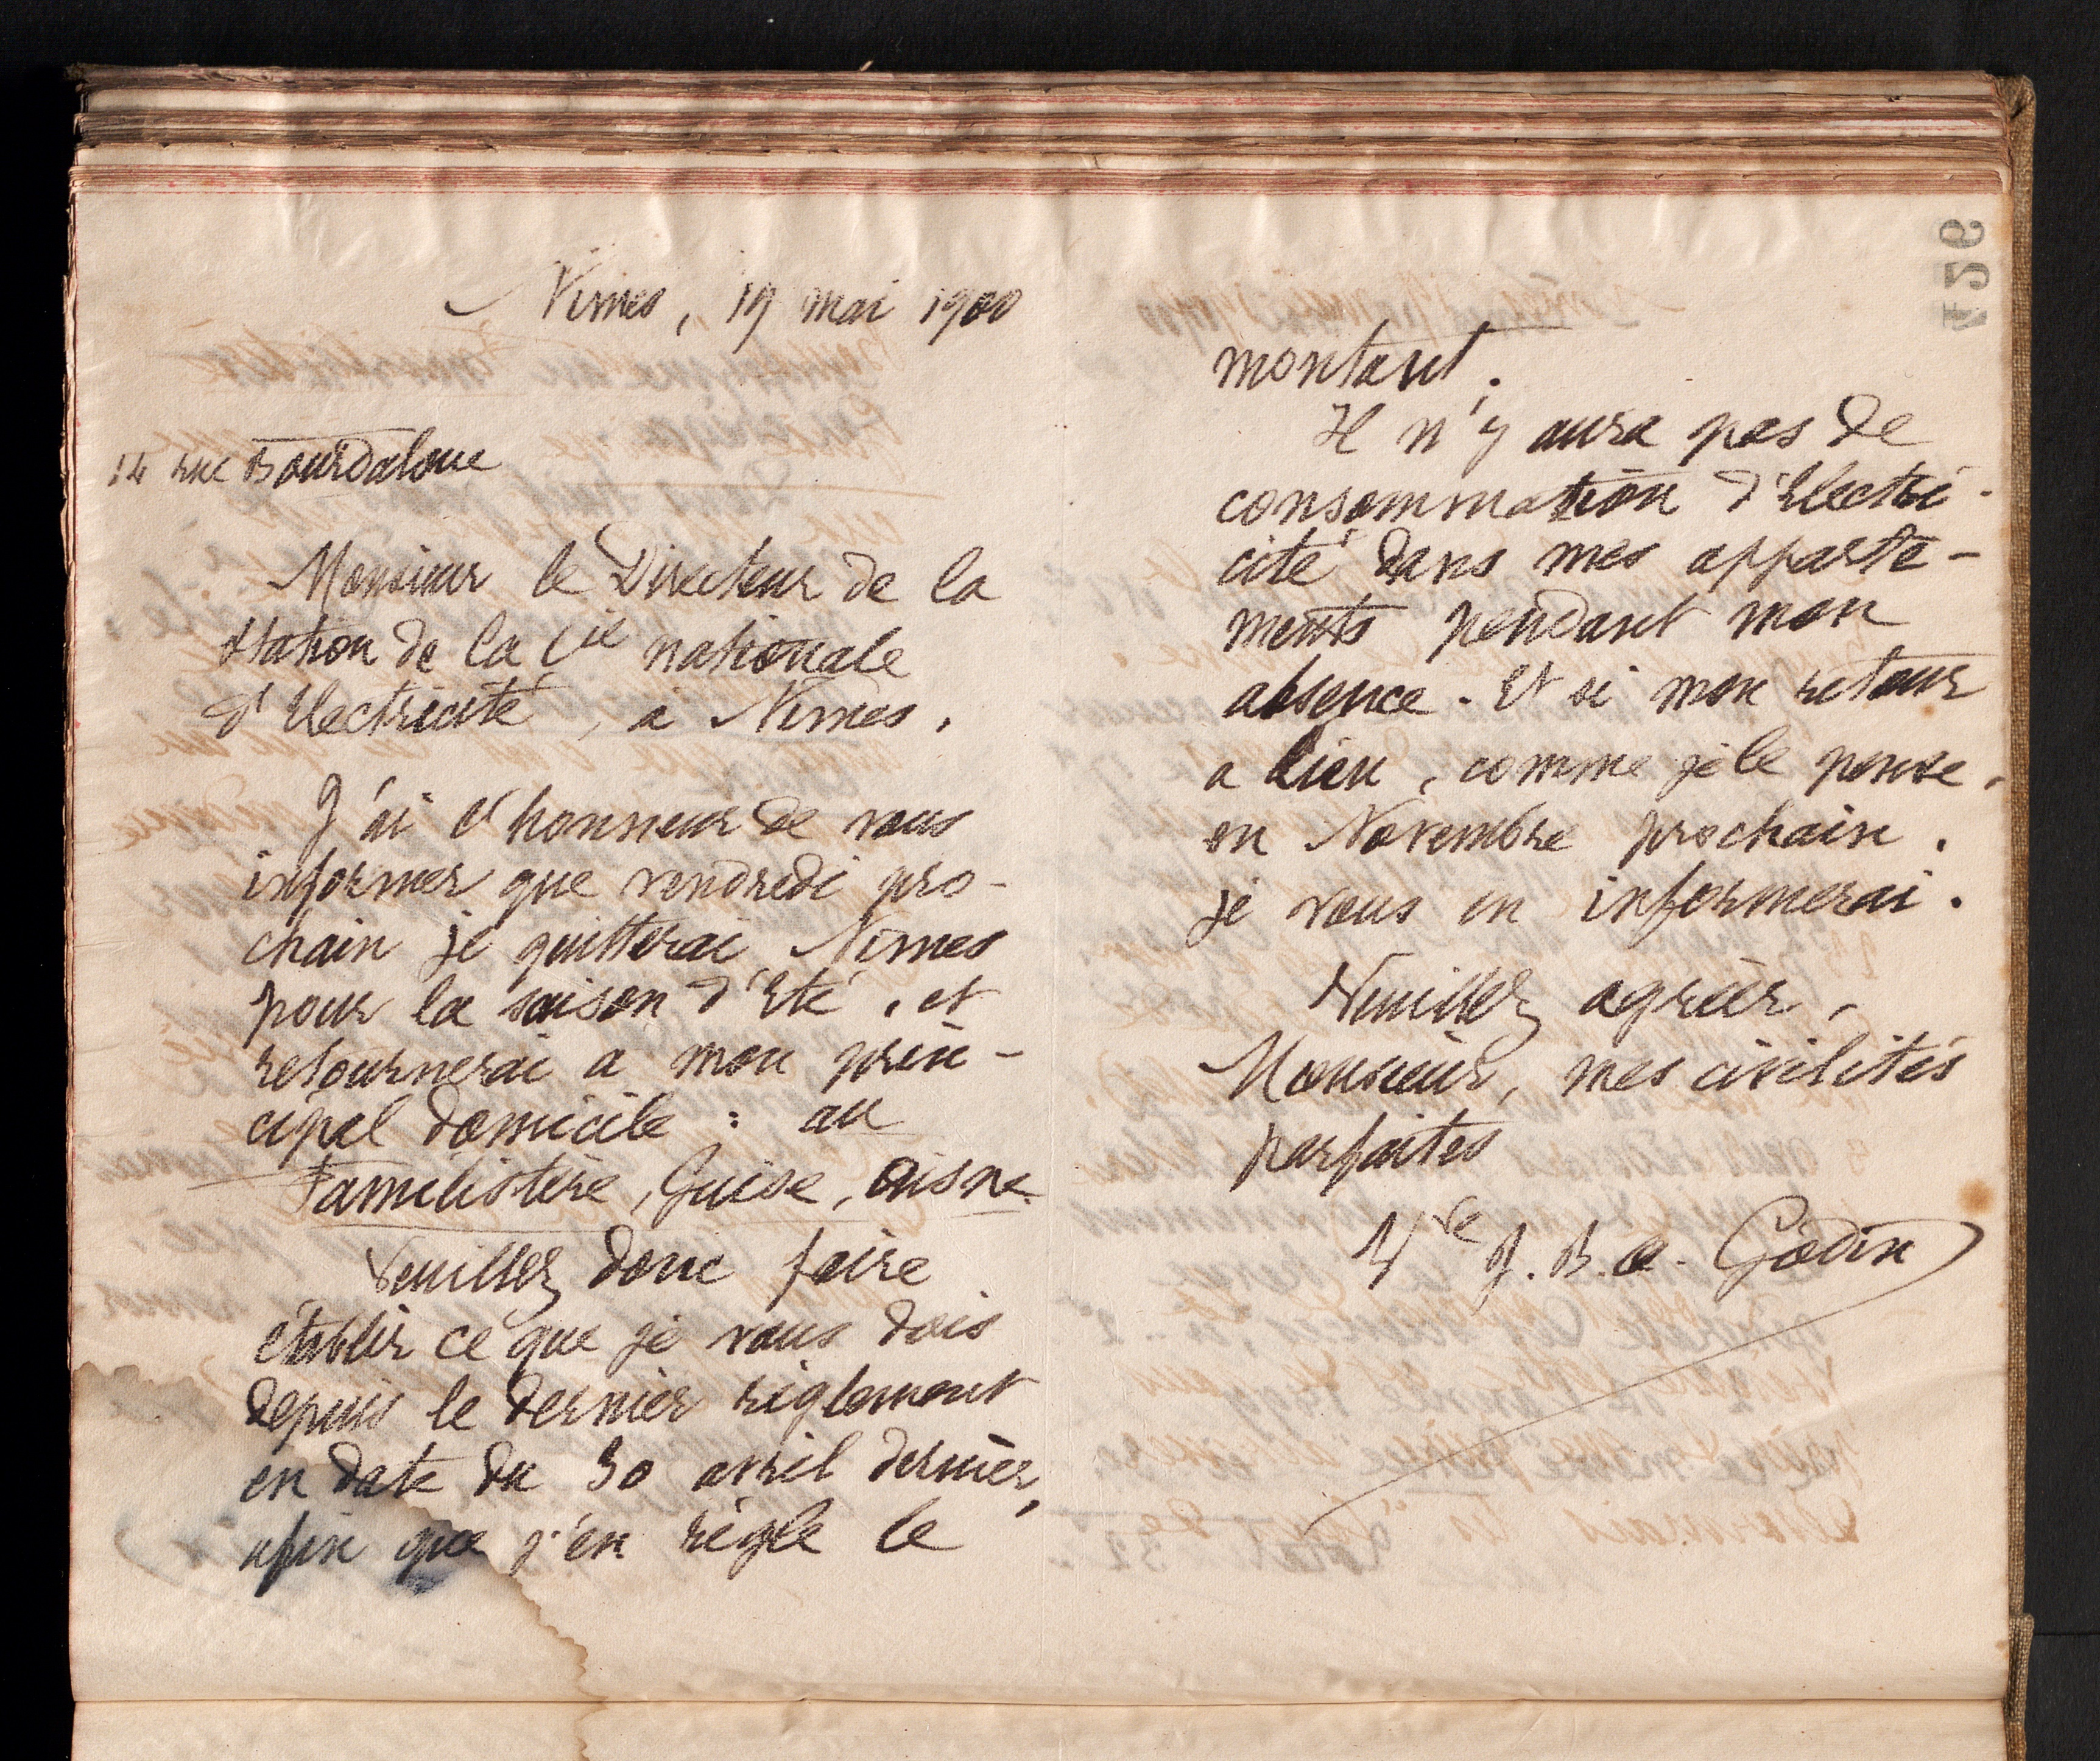 Nîmes, 19 mai 1900
14 rue Bourdaloue
Monsieur le Directeur de la
Station de la Cie nationale
d'Electricité, à Nîmes.
J'ai l'honneur de vous
informer que vendredi pro-
chain je quitterai Nîmes
pour la saison d'Eté, et
retournerai à mon prin-
cipal domicile : au
Familistère, Guise, Aisne.
Veuillez donc faire
établir ce que je vous dois
depuis le dernier règlement
en date du 30 avril dernier,
afin que j'en règle le
montant.
Il n'y aura pas de
consommation d'Electri-
cité dans mes apparte-
ments pendant mon
absence. Et si mon retour
a lieu, comme je le pense,
en Novembre prochain,
je vous en informerai.
Veuillez agréer,
Monsieur, mes civilités
parfaites
Vve J. B. A. Godin